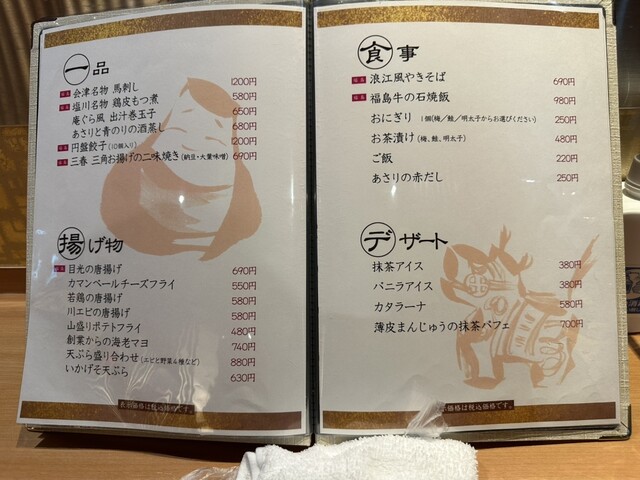 一品
会津名物 馬刺し 1200円
塩川名物 鶏皮もつ煮 580円
庵ぐら風 出汁巻玉子 650円
あさりと青のりの酒蒸し 680円
円盤餃子(10個入り) 1200円
三春 三角お揚げの二味焼き(納豆・大葉味噌) 690円
揚げ物
目光の唐揚げ 690円
カマンベールチーズフライ 550円
若鶏の唐揚げ 580円
川エビの唐揚げ 580円
山盛りポテトフライ 480円
創業からの海老マヨ 740円
天ぷら盛り合わせ(エビと野菜4種など) 880円
いかげそ天ぷら 630円
表示価格は税込価格です。
食事
浪江風やきそば 690円
福島牛の石焼飯 980円
おにぎり 1個(梅/鮭/明太子からお選びください) 250円
お茶漬け(梅、鮭、明太子) 480円
ご飯 220円
あさりの赤だし 250円
デザート
抹茶アイス 380円
バニラアイス 380円
カタラーナ 580円
薄皮まんじゅうの抹茶パフェ 700円
表示価格は税込価格です。